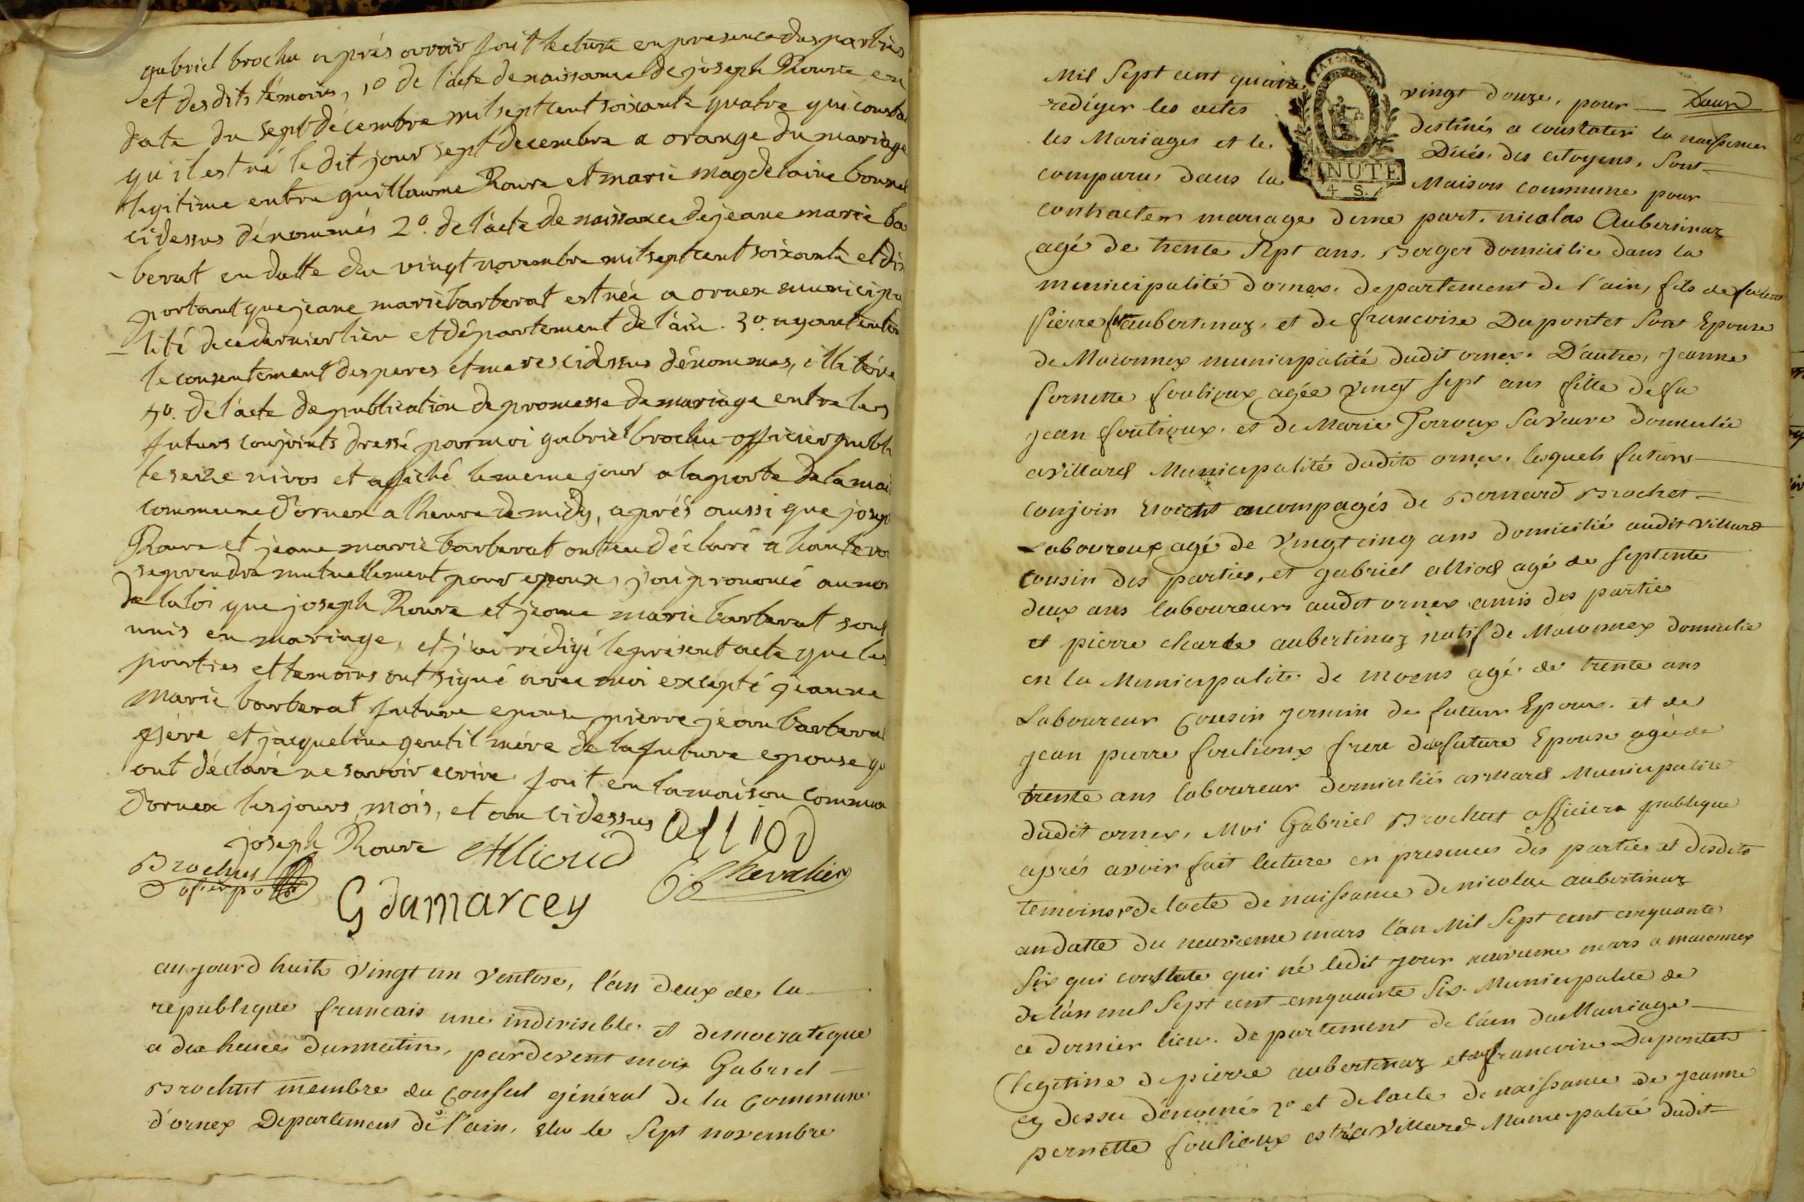 gabriel brochu après avoir fait lecture en presence des parties
et desdits témoins, 1º de l'acte de naissance de joseph Roure en
date du sept décembre mil sept cent soixante quatre qui consta
qu'il est né le dit jour sept decembre a orange du mariage
legitime entre guillaume Roure et marie magdelaine bonnet
cidessus dénommés 2º. de l'acte de naissance de jeane marie ba
berat en datte du vingt novembre mil sept cent soixante et dix
portant que jeane marie barberat est née a ornex municipa
lité de ce dernier lieu et département de l'ain. 3º. ayant enten
le consentement des peres et meres cidessus dénommés,
4º. de l'acte de publication de promesse de mariage entre les
futurs conjoints dressé par moi gabriel brochu officier publi
le seize nivos et affiché le meme jour a la porte de la mai
commune d'ornex a lheure de midy, après aussi que josep
Roure et jeane marie barberat ont eu déclaré a haute vo
se prendre mutuellement pour epoux, j'ai prononcé au nom
de la loi que joseph Roure et jeane marie barberat sont
unis en mariage, et j'ai rédigé le présent acte que les
parties et temoins ont signé avec moi excepté jeanne
marie barberat future epouse pierre jean barberat
père et jacqueline gentil mére de la future epouse qu
ont déclaré ne savoir ecrire fait en la maison commun
d'ornex les jours, mois, et an cidessus
alliod
joseph Roure Allioud
Brochus
G: Chevalier
G damarcey
aujourd huit vingt un ventose, l'an deux de la
republique francais une indivisible et democratique
a dix heures du matin, pardevent moi Gabriel
Brochut membre du Conseil général de la commune
d'ornex Departement de l'ain, elu le Sept novembre
Mil Sept cent quatre vingt douze, pour Dans
rediger les actes destinés a constater la naissances
les Mariages et le Décés des citoyens, Sont
comparu dans la Maison commune pour
MINUTE
4 S.
contracter mariage d'une part, nicolas Aubertinaz
agé de trente Sept ans, Berger domicilie dans la
municipalité dornex, departement de l'ain, fils de
pierre aubertinaz, et de francoise Dupontet Son Epouse
de Maconnex municipalité dudit ornex. D'autre, Jeanne
pernette foulioux agée vingt sept ans fille de fu
jean foulioux, et de Marie Perroux Sa veuve domiciliée
a villard Municipalité dudits ornex, lesquels futurs
conjoin etoient accompagés de Bernard Brochet
Laboureux agé de vingt cinq ans domicilié audit villard
Cousin des parties, et gabriel alliod agé de septente
deux ans laboureurs audit ornex amis des partie
et pierre charle aubertinaz natif de Maconnex domicilie
en la Municipalite de moens agé de trente ans
Laboureur Cousin germin de futur Epoux, et de
jean pierre foulioux frere de future Epouse agé de
trente ans laboureur domiciliés a villard Municipalite
dudit ornex, Moi Gabriel Brochut officiers publique
aprés avoir fait luture en presences des parties et desdits
temoins 1º de lacte de naissance de nicolas aubertinaz
an datte du neuvieme mars l'an Mil Sept cent cinquante
Six qui constate qui né ledit jour neuvieme mars a maconnex
de l'an mil Sept cent cinquante Six. Municipalite de
ce dernier lieu. departement de l'ain du Mariage
legitime de pierre aubertinaz et de francoise Dupontet
cy dessu dénomés 2º et de lacte de naissance de jeanne
pernette foulioux est né a villard Municipalité dudit